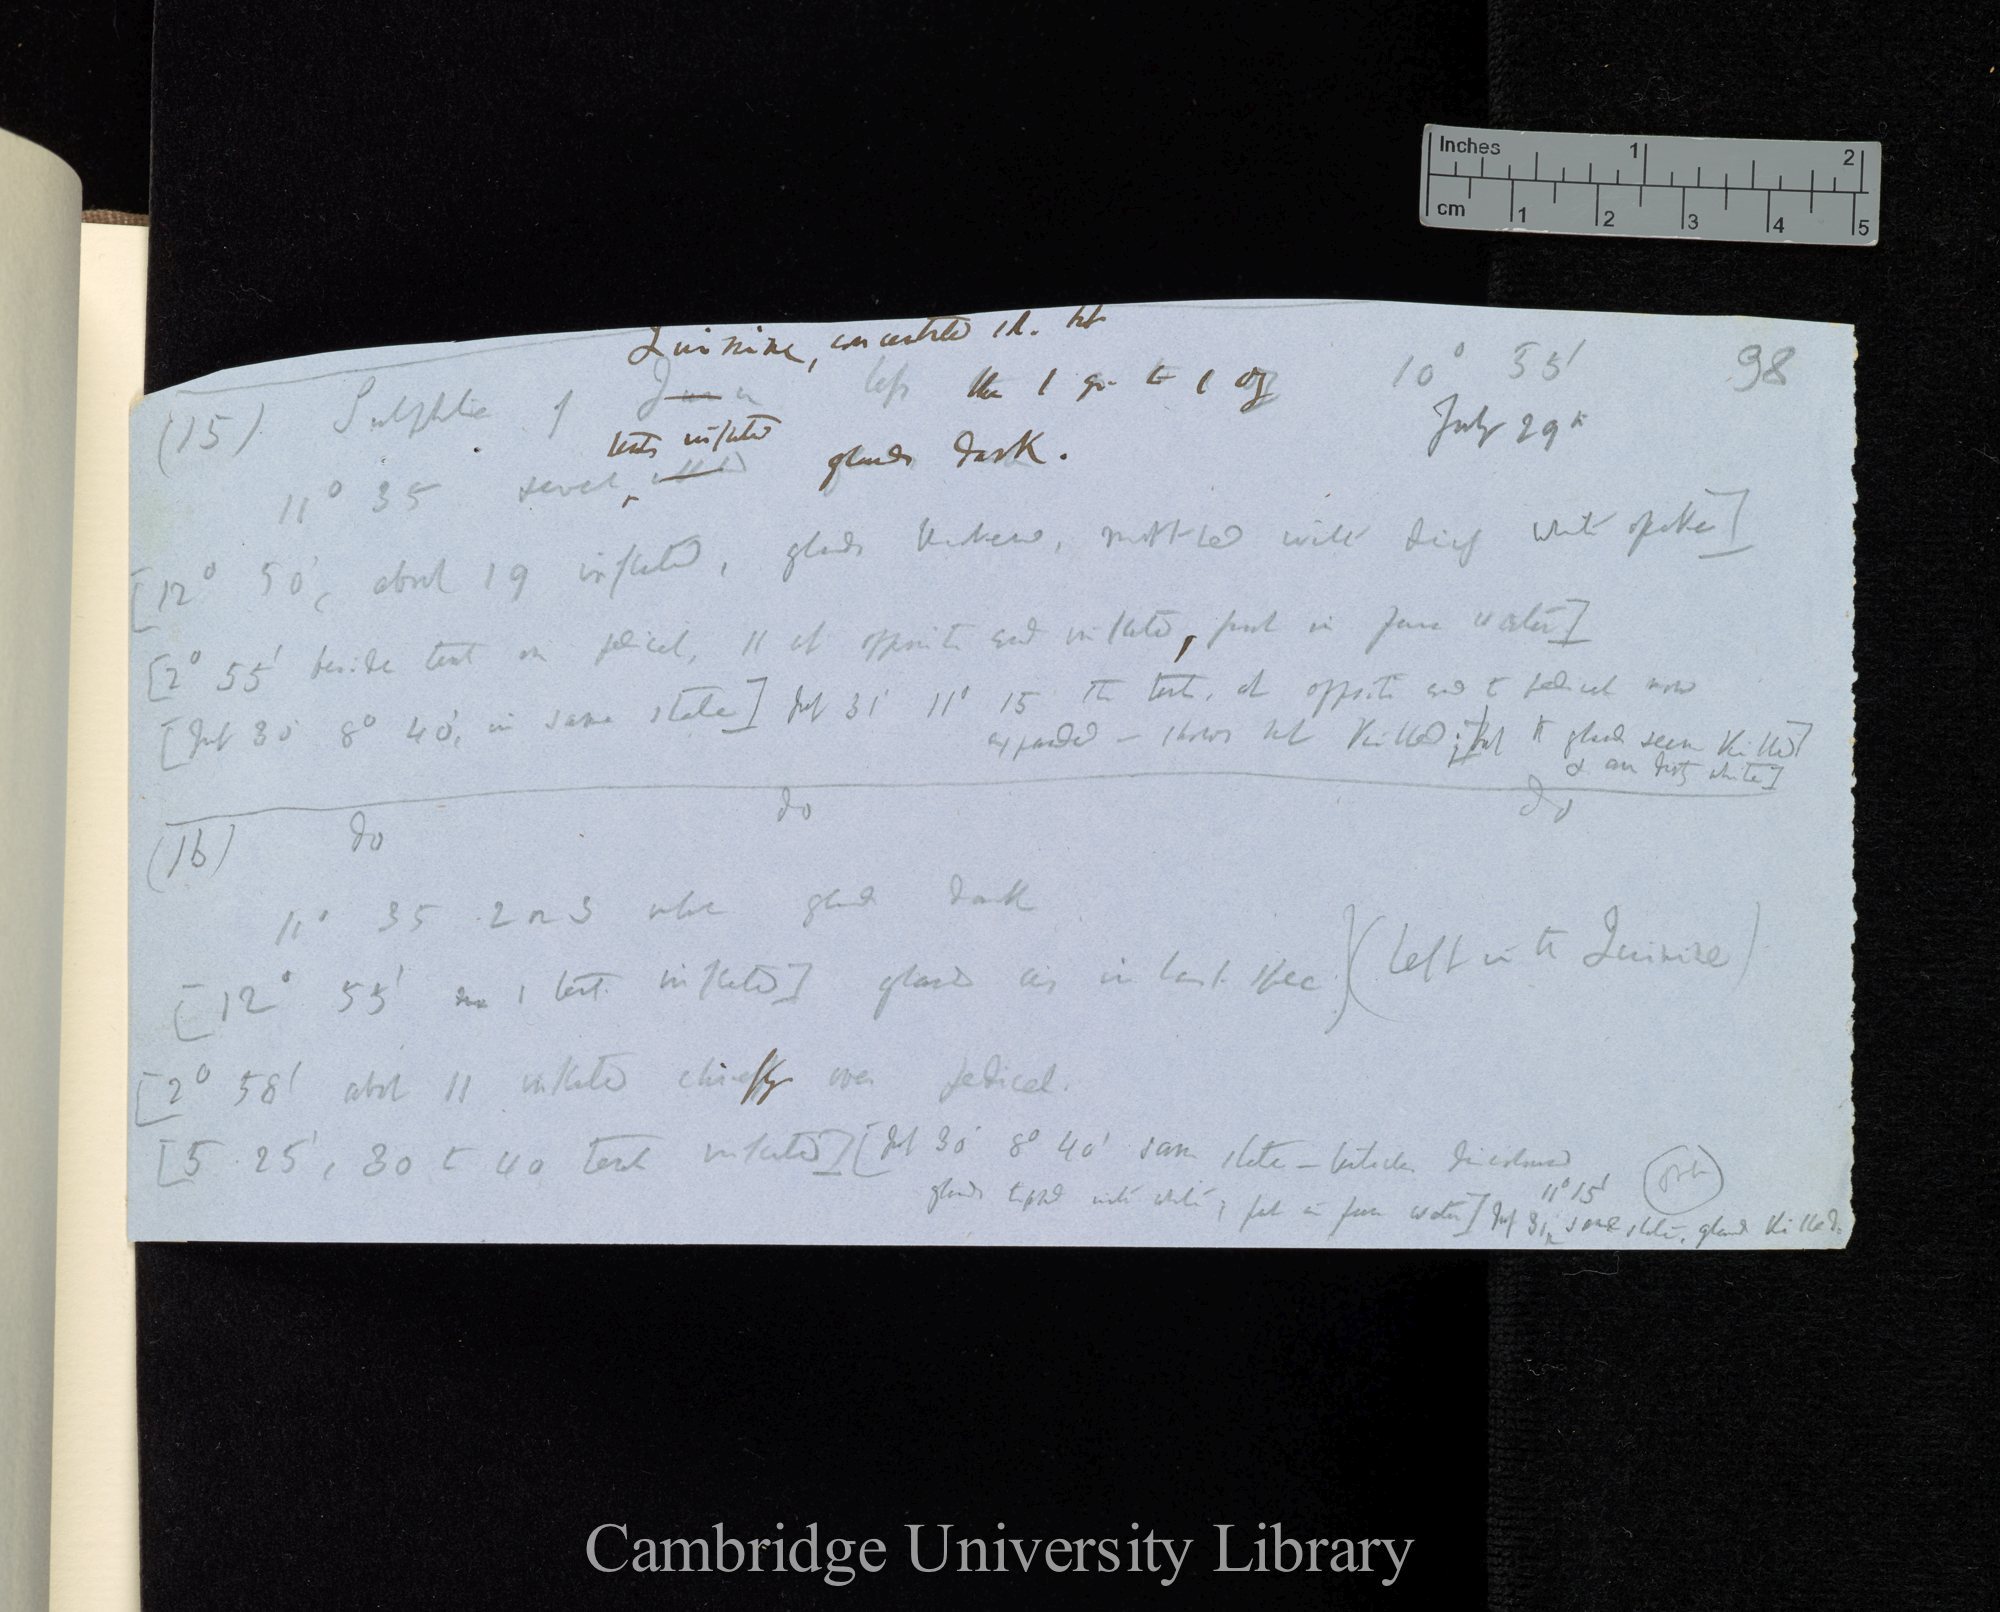 Inches 1 2
cm 1 2 3 4 5
98
Quinine, concentrated sol. but
(15) Sulphate of less than 1 gr to 1 oz 10° 55'
July 29th
tent inflected
11° 35 several glands dark.
[12° 50', about 19 inflected, glands, mottled with dingy white spots]
[2° 55' beside tent on pedicel, 11 at opposite end inflected, put in pure water]
[July 30 8° 40', in same state] July 31 11° 15 The tent. at opposite end to pedicel now
expanded — shows not killed; [but the glands seem killed]
& are dirty white]
(16) do do do
11° 35 2 or 3 glands dark
[12° 55' 1 tent. inflected] glands as in last spec.) (Left in the Quinine)
[2° 58' about 11 inflected chiefly over pedicel.
[5 25', 30 to 40 tent inflected] [July 30 8° 40' same state — tentacles discoloured
glands tipped with white, put in pure water] July 31 11° 15' same state, glands killed.
Cambridge University Library